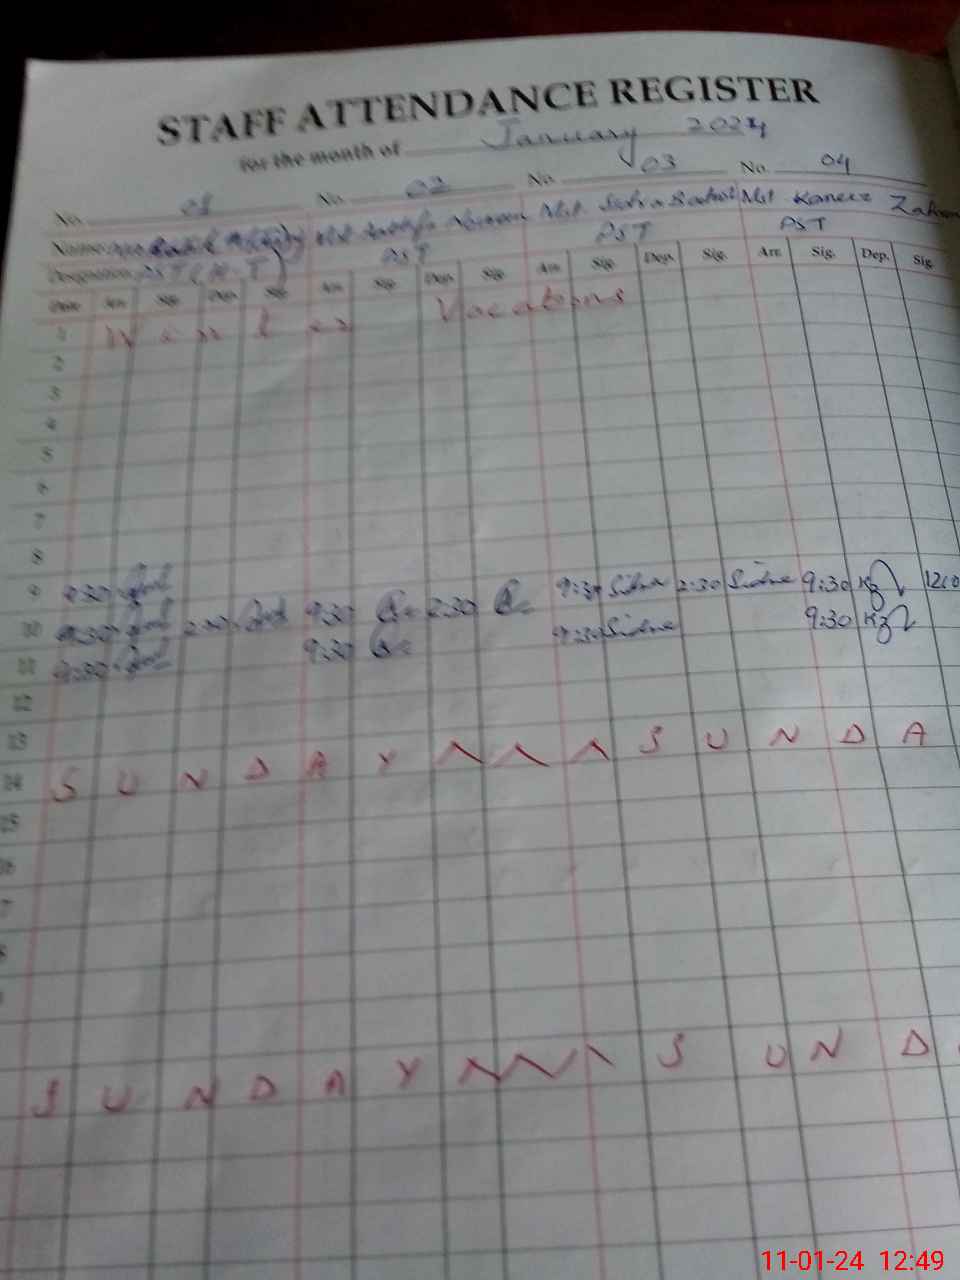 STAFF ATTENDANCE REGISTER
for the month of January 2024
No. 01 No. 02 No. 03 No. 04
Name Mst Mst. Mst Kaneez Zahra
Designation PST (H.T) PST PST PST
Date Arr. Sig. Dep. Sig. Arr. Sig. Dep. Sig. Arr. Sig. Dep. Sig. Arr. Sig. Dep. Sig.
1 Winter Vacations
2
3
4
5
6
7
8
9 9:30 9:30 2:30 9:30 Kz 12:0
10 9:30 2:30 9:30 2:30 9:30 9:30 Kz
11 9:30 9:30
12
13
14 S U N D A Y S U N D A
15
16
7
8
S U N D A Y S U N D
11-01-24 12:49